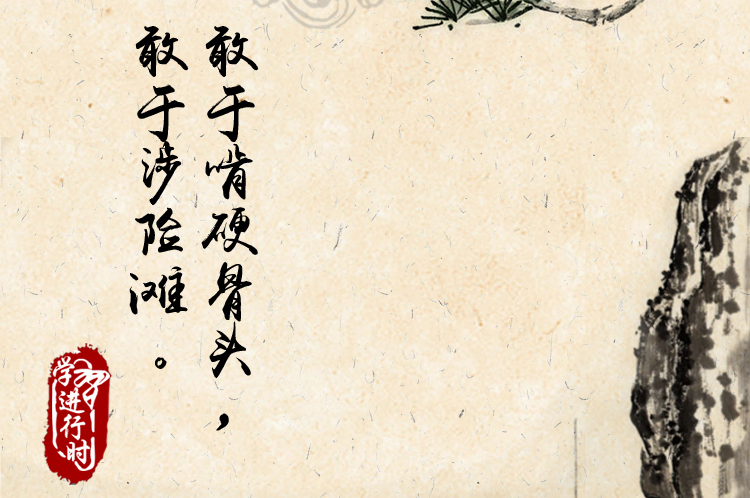 敢于啃硬骨头，
敢于涉险滩。
学习进行时